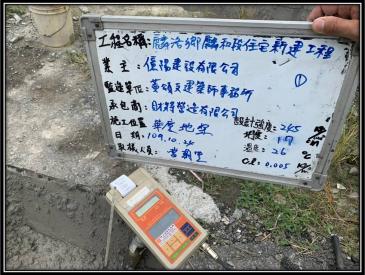 工程名稱: 麟洛鄉麟和段住宅新建工程
業主: 優陽建設有限公司
①
監造單位: 黃靖文建築師事務所
承包商: 財將營造有限公司
設計強度: 245
施工位置 華度地坪
坍度: 17
日期: 109.10.24
溫度: 26 ℃
取樣人員:
Cl: 0.005